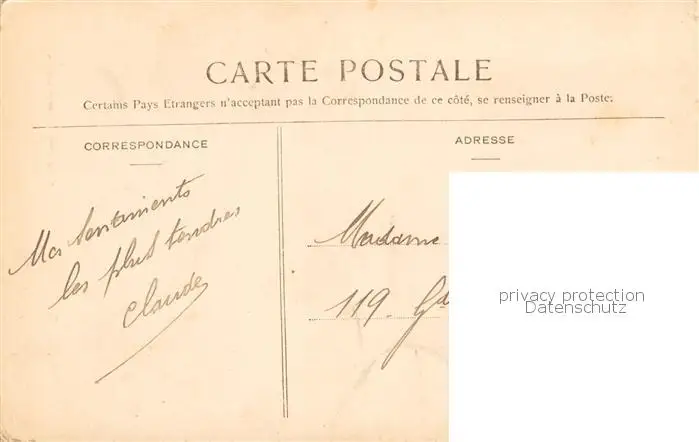 CARTE POSTALE
Certains Pays Etrangers n'acceptant pas la Correspondance de ce côté, se renseigner à la Poste.
CORRESPONDANCE
ADRESSE
Mes sentiments
les plus tendres
Claude
Madame
119. Gd
privacy protection
Datenschutz